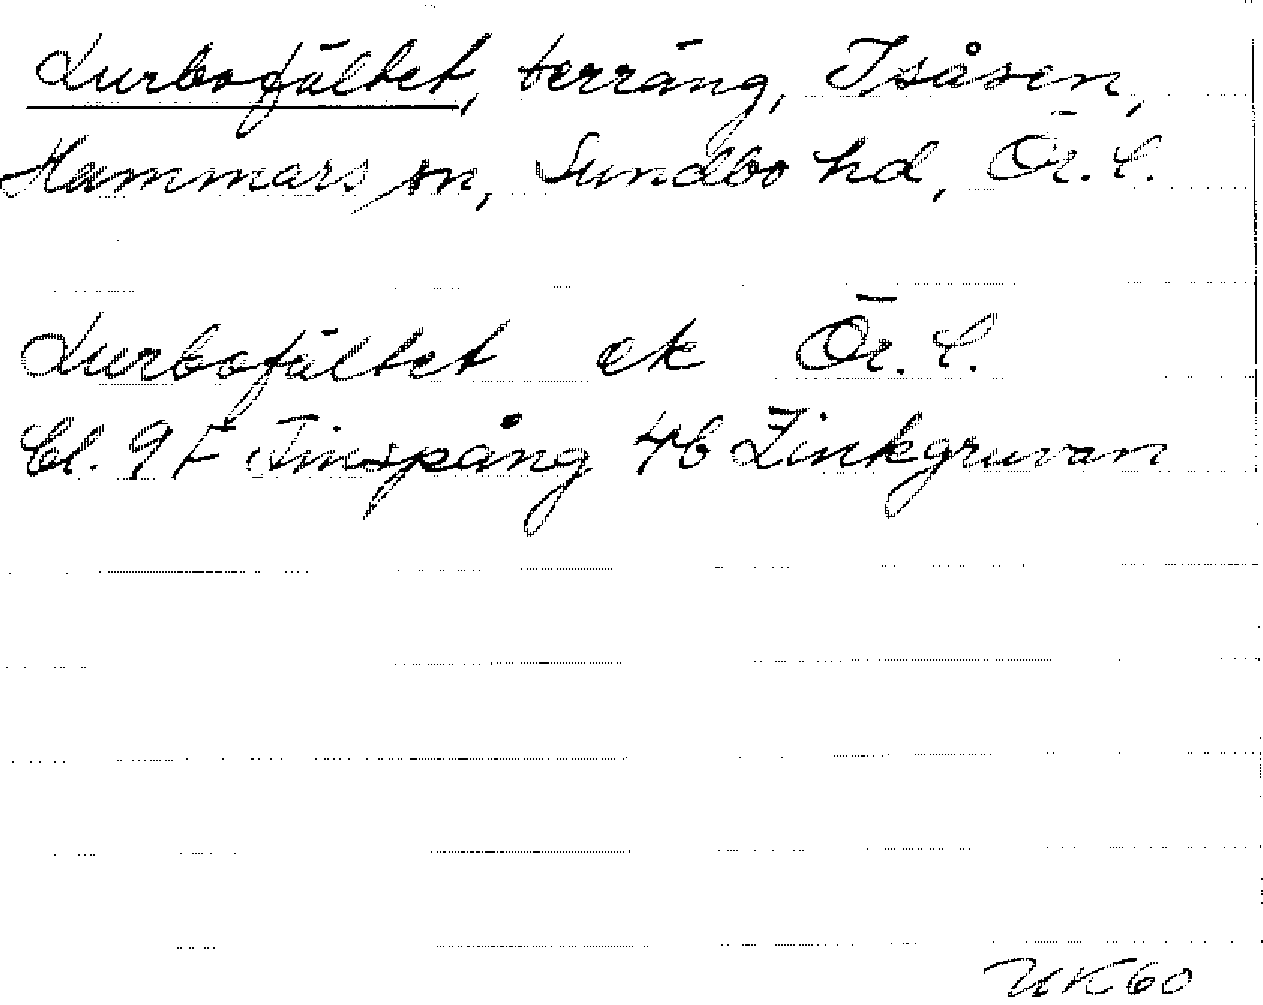 Lurbofältet, terräng, Isåsen,
Hammars sn, Sundbo hd, Ör. l.
Lurbofältet ek Ör. l.
Bl. 9F Finspång 4b Zinkgruvan
UK60